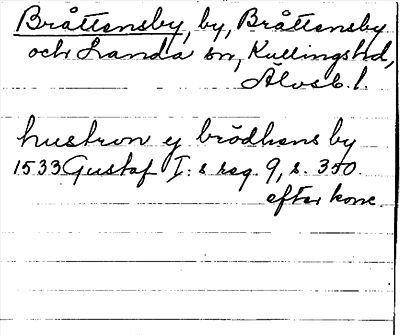 Bråttensby, by, Bråttensby
och Landa sn, Kullingshd,
Älvsb. l.
hustron y brödhens by
1533 Gustaf I:s reg. 9, s. 350.
efter konc.